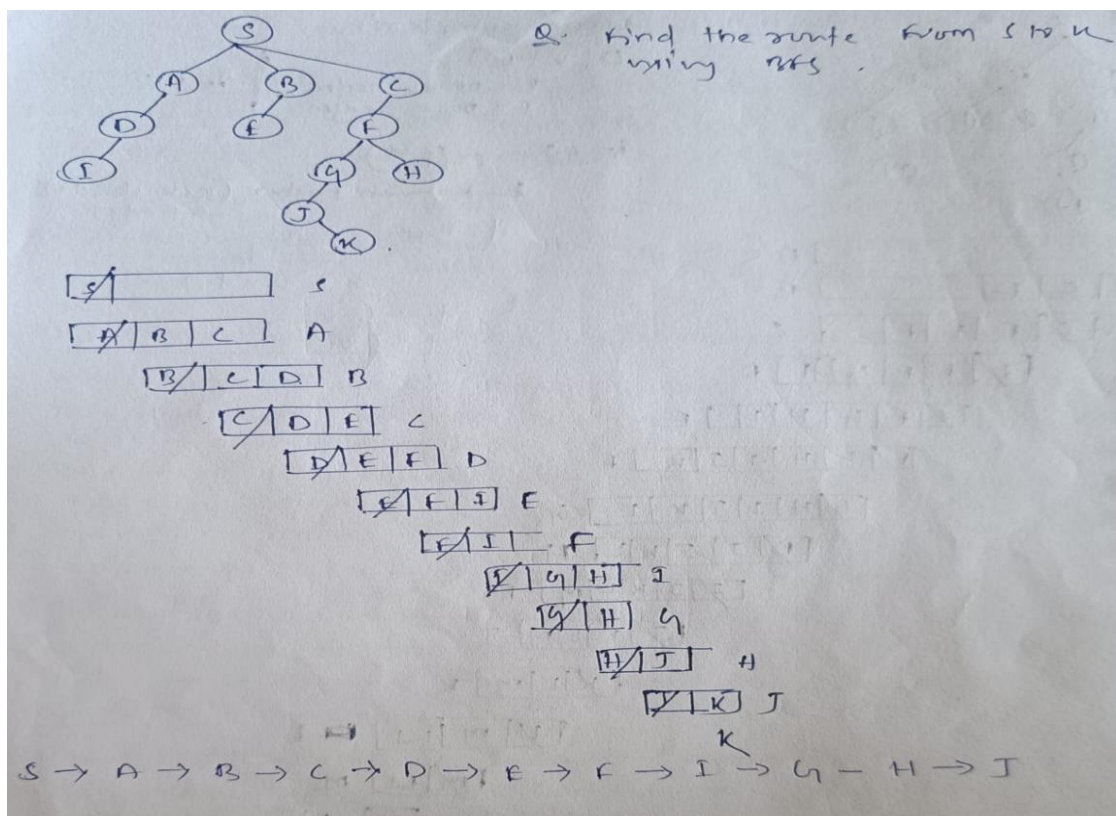 S
Q. Find the route from S to K
using BFS.
A B C
D E F
I G H
J
K
S S
A B C A
B C D B
C D E C
D E F D
E F I E
F I F
I G H I
G H G
H J H
J K J
K
S → A → B → C → D → E → F → I → G - H → J